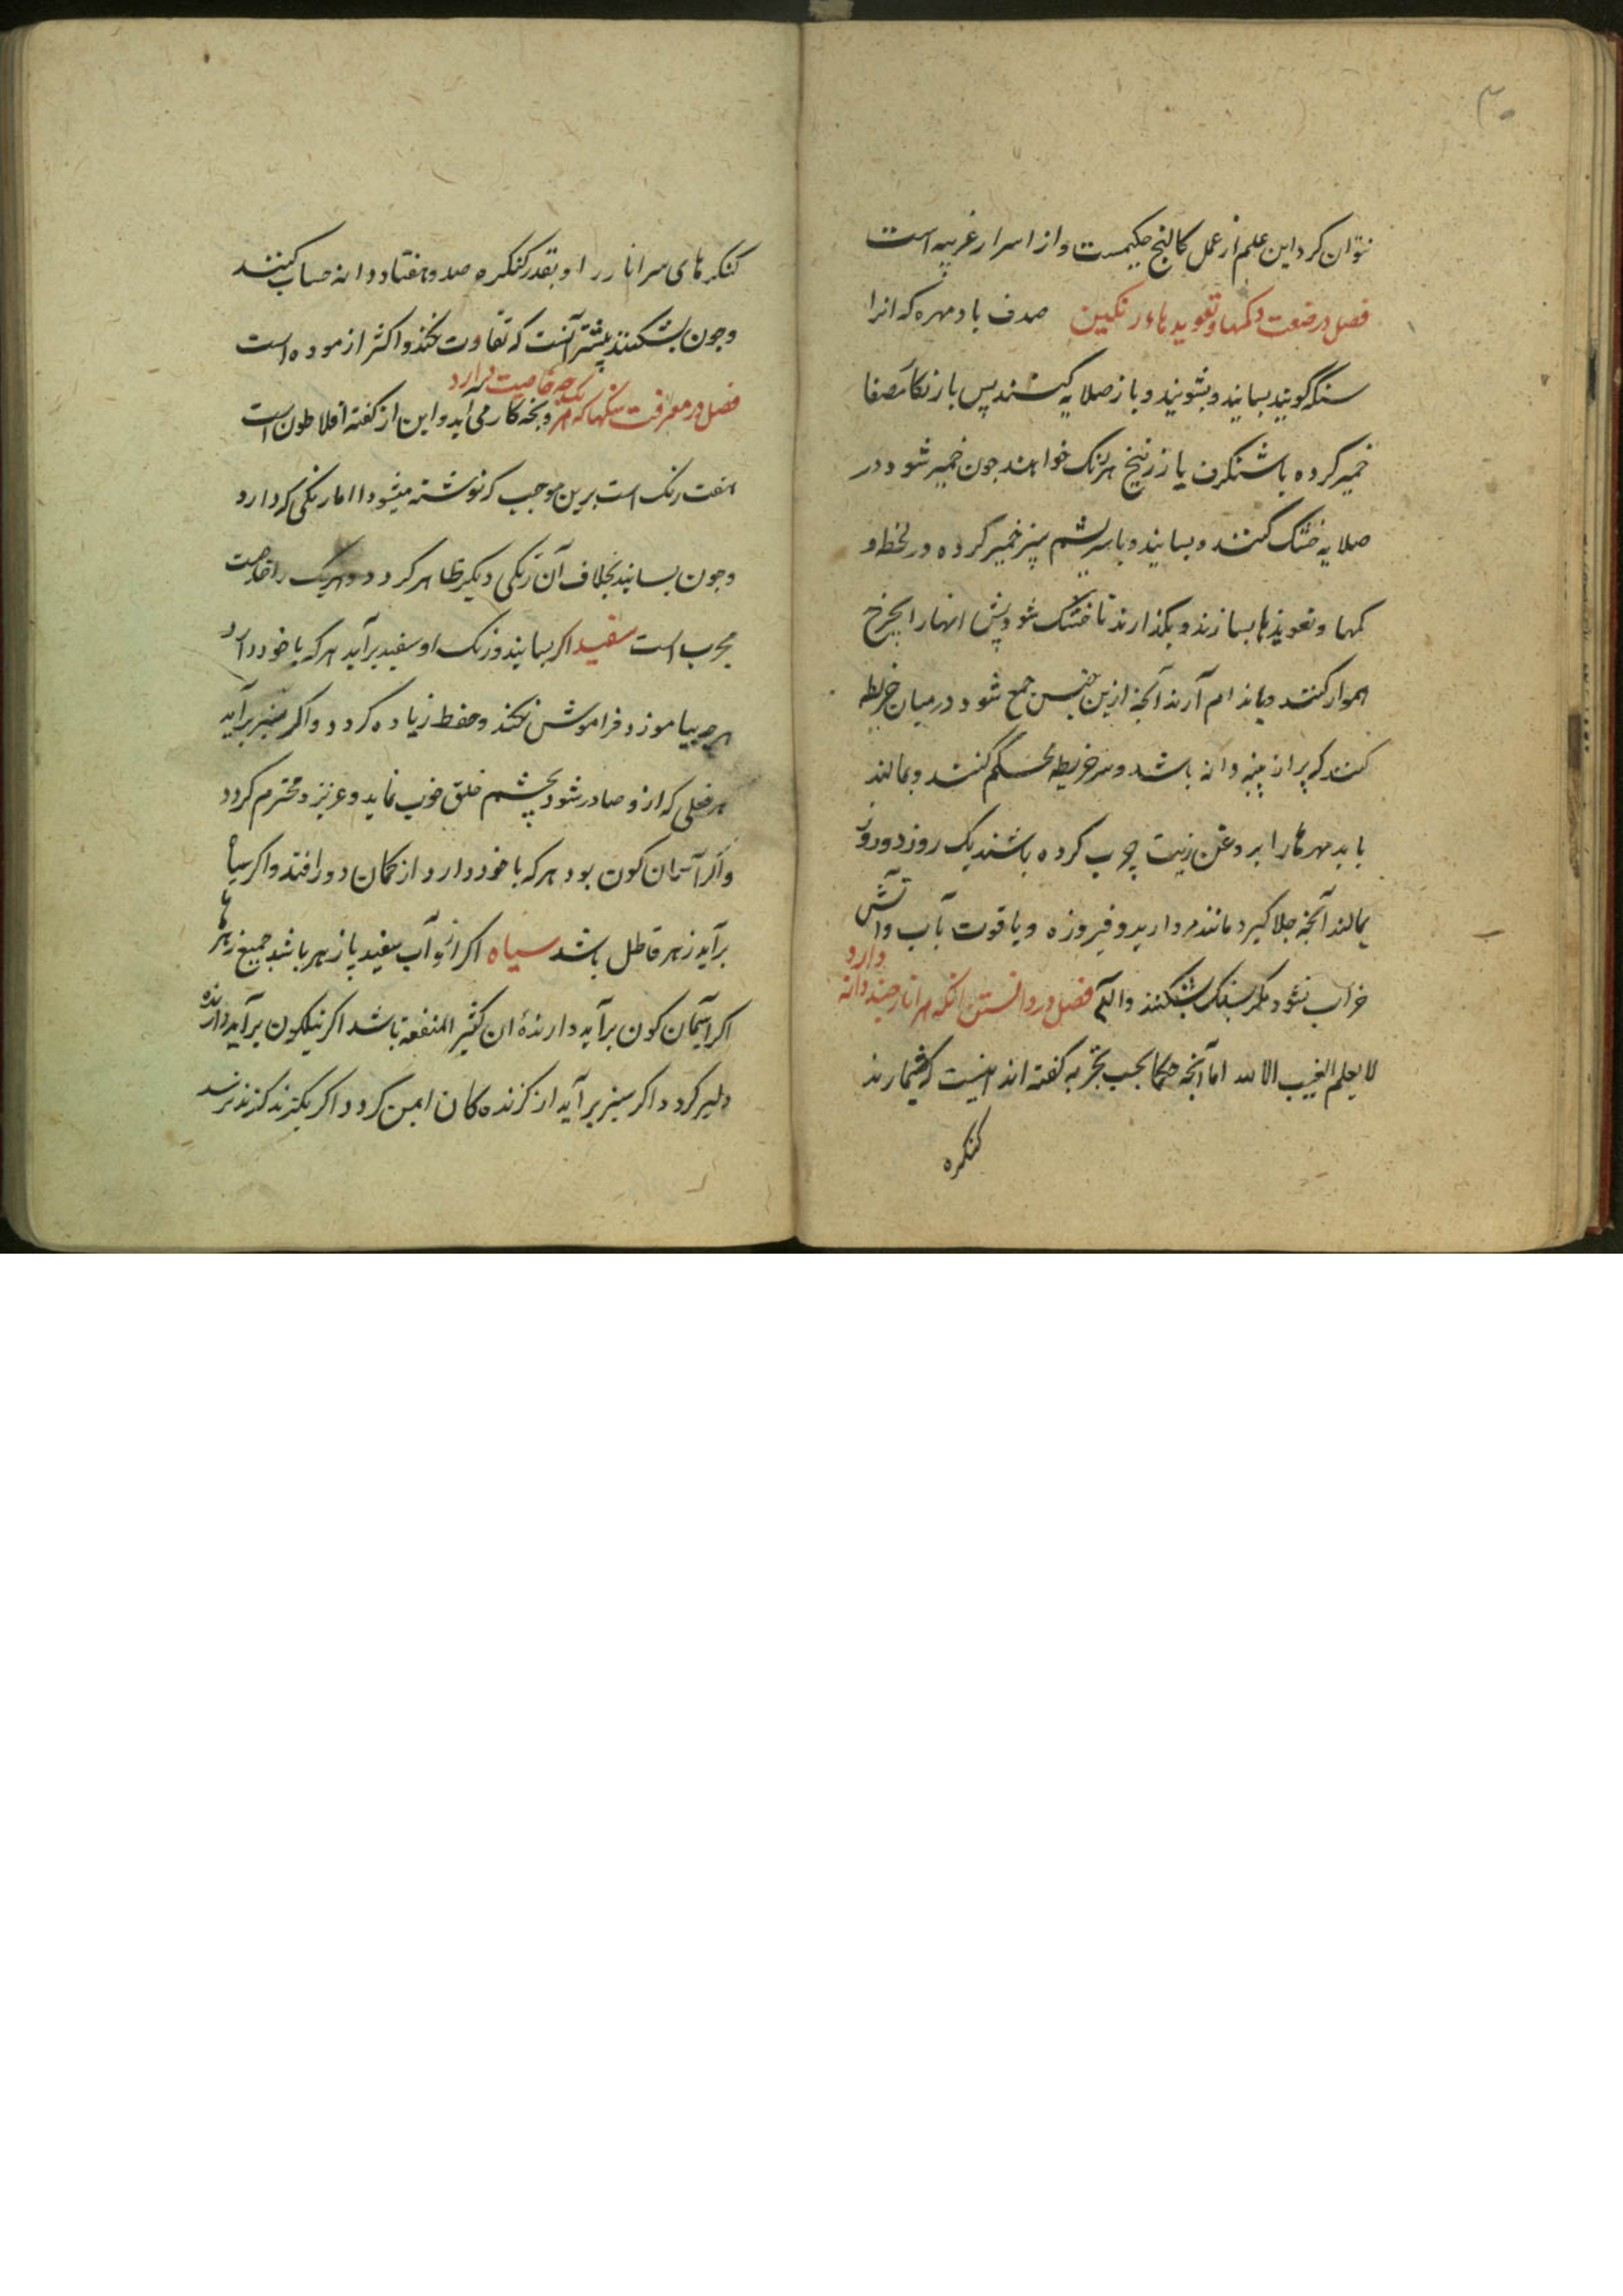 ۳۰
نتوان کرد این علم از عمل کالنج حکیمست و از اسرار غریبه است
فصل در صنعت دکمها و تعویذ هاء رنکین صدف با د مهره که انرا
سنک کویند بسایند و بشویند و باز صلایه کنند پس با
خمیر کرده با شنکرف یا زرنیخ هر رنک خواهند جون خمیر شود در
صلایه خشک کنند و بسایند و با سریشم پنیر خمیر کرده در لحظه و
کمها و تعویذها بسازند و بکذارند تا خشک شود پس انهارا بجرخ
هموار کنند و باندام آرند آنجه ازین جنس جمع شود در میان خریطه
کنند که پر از پنبه دانه باشد و سر خریطه محکم کنند و بمالند
باید مهرهارا بروغن زیت چرب کرده باشند یک روز دو روز
بمالند آنجه جلا کیرد مانند مروارید و فیروزه و یاقوت بآب و آتش
خراب نشود مکر بسنک بشکنند فصل در دانستن انکه هر انار چند دانه دارد
لا یعلم الغیب الا الله اما آنجه حکما بحسب تجربه کفته اند اینست که بشمارند
کنکره
کنکرهای سر انار را و بقدر کنکره صد و هفتاد دانه حساب کنند
و جون بشکنند بیشتر آنست که تفاوت نکند و اکثر ازموده است
فصل در معرفت سنکها که هر یک چه خاصیت دارد و بجه کار می اید و این از کفته افلاطون است
هفت رنک است برین موجب که نوشته میشود اما رنکی که دارد
و جون بسایند بخلاف آن رنکی دیکر ظاهر کردد و هریک را خاصیت
مجرب است سفید اکر بسایند و رنک او سفید برآید هر که با خود دارد
هرچه بیاموزد فراموش نکند و حفظ زیاده کردد و اکر سبز برآید
هر فعلی که ازو صادر شود بچشم خلق خوب نماید و عزیز و محترم کردد
و اکر آسمان کون بود هر که با خود دارد از کمان دور افتد و اکر سیاه
برآید زهر قاطل باشد سیاه اکر ازو آب سفید پازهر باشد جمیع زهرها
اکر آسمان کون برآید دارندۀ ان کثیر المنفعة باشد اکر نیلکون برآید دارنده
دلیر کردد اکر سبز برآید از کزنده کان ایمن کردد اکر بکزند کزند نرسد